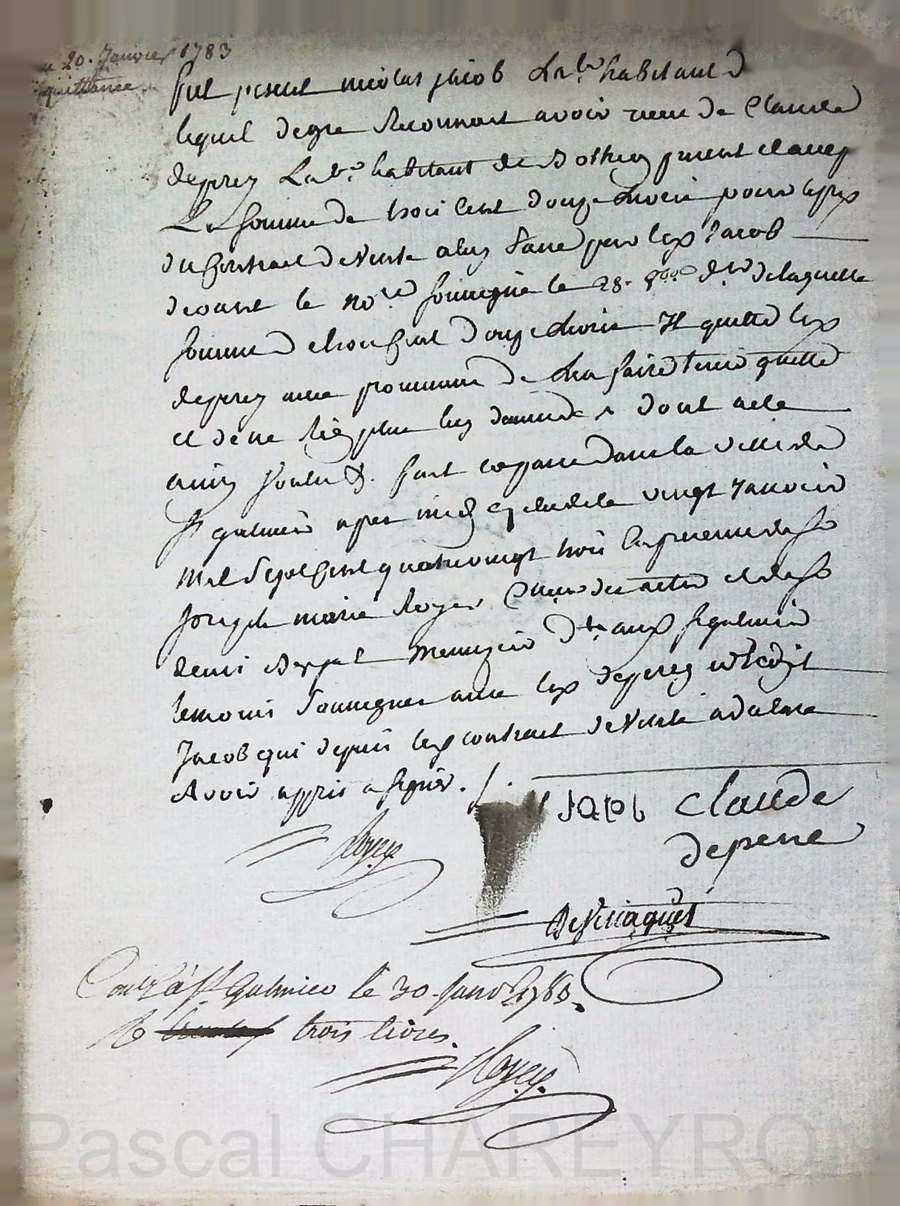 20. Janvier 1783
quittance.
fut present nicolas jacob Lab.r habitant d
lequel de gre Reconnoit avoir receu de Claude
deperey Lab.r habitant de Botheon present et accep
La somme de trois Cent douze Livres pour le prix
du Contract de Vente a luy passé par led. Jacob
devant le no.re soussigné le 28.
somme de trois Cent douze Livres Il quitte led.
deperey avec promesse de l'en faire tenir quitte
et de ne rien plus luy demander dont acte
ainsi Voulu &. fait et passé dans la Ville de
St galmier apres midy ce vingt Janvier
mil Sept Cent quatre vingt trois En presence de Sr
Joseph marie Royer et de Sr
denis menuizier aud. St galmier
temoins Soussignes avec led. deperey et led.
Jacob qui depuis led. contract de Vente a declaré
Avoir appris a signer.
Jacob Claude
deperre
Royer
Con.lé à St Galmier le 30 Janv. 1783.
R. trois livres.
Royer
Pascal CHAREYRON